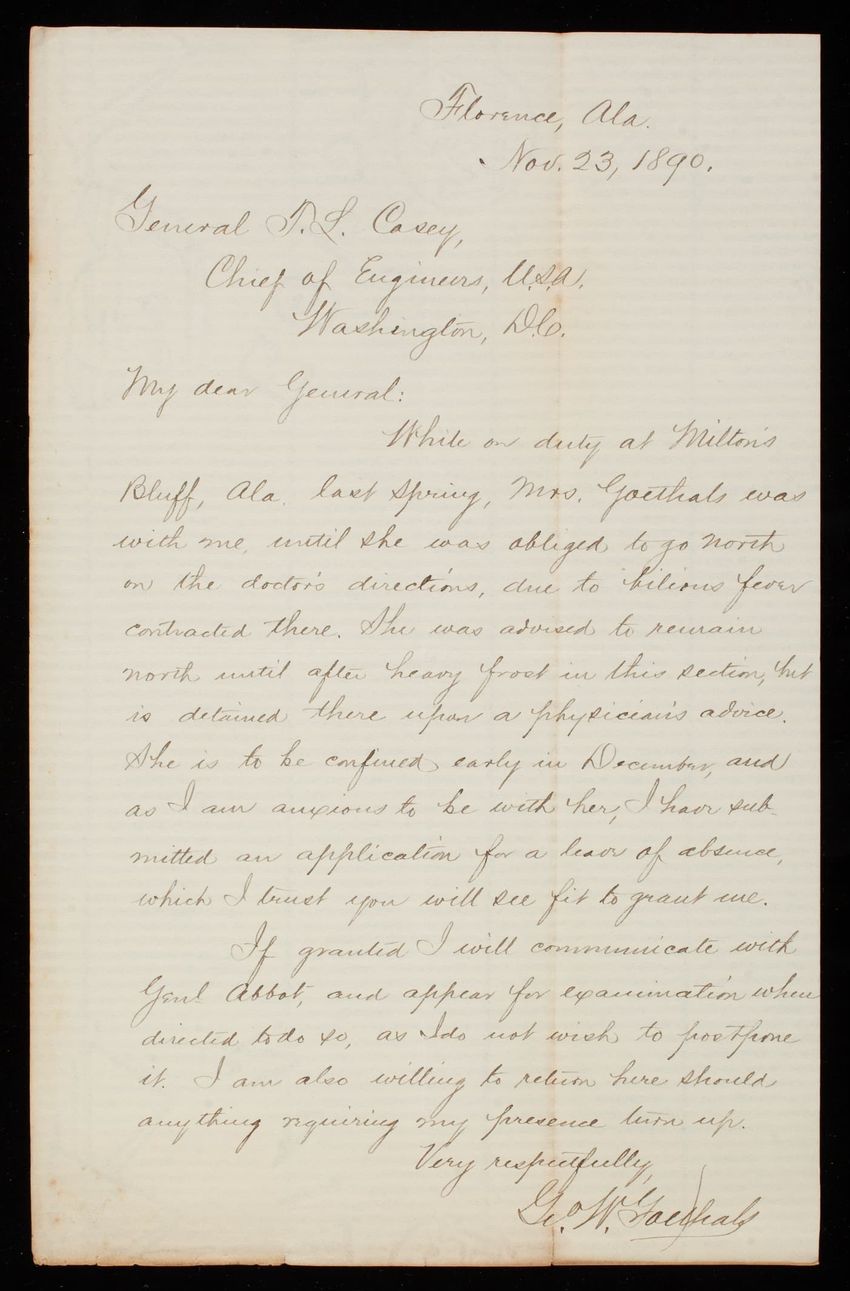 Florence, Ala.
Nov. 23, 1890.
General T. L. Casey,
Chief of Engineers, U.S.A.
Washington, D.C.
My dear General:
While on duty at Milton's
Bluff, Ala. last spring, Mrs. Goethals was
with me, until she was obliged to go north
on the doctor's directions, due to bilious fever
contracted there. She was advised to remain
north until after heavy frost in this section, but
is detained there upon a physician's advice.
She is to be confined early in December, and
as I am anxious to be with her, I have sub-
mitted an application for a leave of absence,
which I trust you will see fit to grant me.
If granted I will communicate with
Genl Abbot, and appear for examination when
directed to do so, as I do not wish to postpone
it. I am also willing to return here should
anything requiring my presence turn up.
Very respectfully,
Geo. W. Goethals